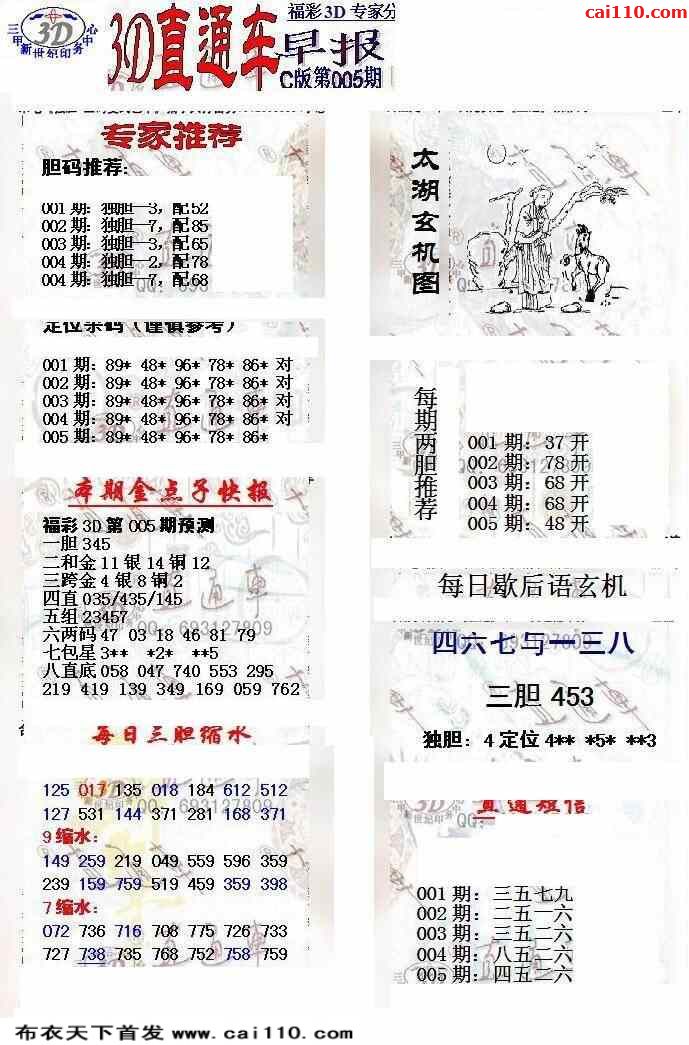 cai110.com
福彩3D 专家分
三甲 3D 中心
新世纪印务
3D直通车
早报
C版第005期
专家推荐
胆码推荐:
001期: 独胆—3, 配52
002期: 独胆—7, 配85
003期: 独胆—3, 配65
004期: 独胆—2, 配78
004期: 独胆—7, 配68
定位杀码 (谨慎参考)
001期: 89* 48* 96* 78* 86* 对
002期: 89* 48* 96* 78* 86* 对
003期: 89* 48* 96* 78* 86* 对
004期: 89* 48* 96* 78* 86* 对
005期: 89* 48* 96* 78* 86*
本期金点子快报
福彩3D第005期预测
一胆345
二和金11银14铜12
三跨金4银8铜2
四直035/435/145
五组23457
六两码47 03 18 46 81 79
七包星3** *2* **5
八直底058 047 740 553 295
219 419 139 349 169 059 762
每日三胆缩水
125 017 135 018 184 612 512
127 531 144 371 281 168 371
9缩水:
149 259 219 049 559 596 359
239 159 759 519 459 359 398
7缩水:
072 736 716 708 775 726 733
727 738 735 768 752 758 759
太湖玄机图
每期两胆推荐
001期: 37开
002期: 78开
003期: 68开
004期: 68开
005期: 48开
每日歇后语玄机
四六七与一三八
三胆 453
独胆: 4定位4** *5* **3
直通短信
001期: 三五七九
002期: 二五一六
003期: 三五二六
004期: 八五二六
005期: 四五二六
QQ: 693127809
布衣天下首发 www.cai110.com